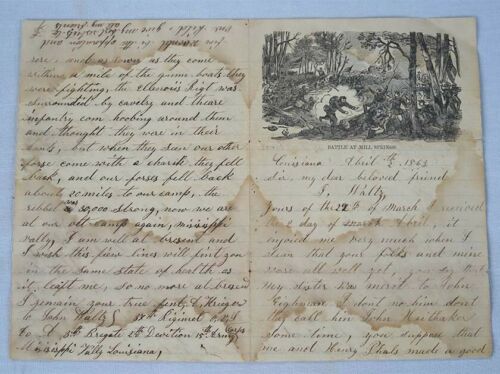 sore, and as lower as they come
within a mile of the gunn boats they
were fighting, the Ellenoiis Rigt was
surrounded by cavelry and theare
infantry com hoobing around them
and thought they were in their
tents, but when they seen our other
forse come with a charih they fell
back, and our forses fell back
about 20 miles to our camp, the
rebbel was 30,000 strong, now we are
at our old camp again, mississippi
vally, I am well at bresent and
I wish this few lines will find you
in the same state of health as
it left me, so no more at bresent
I remain your true frent, E Krieger
to John Waltz 37th Rigiment
Co 3th Brigate 2th Devition 15th Army Corps
Mississippi Vally Louisiana,
BATTLE AT MILL SPRINGS.
Louisiana Abril 7th, 1863
Sir, my dear beloved friend
J, Waltz
Yours of the 22th of March I received
the 2 day of march Abril, it
injoied me very much when I
seen that your folks and mine
were all well yet, you say that
My sister was mirat to John
Eighmane I dont no him dont
tha call him John Neithaker
Some time, you suppose that
me and Henry Phals made a good